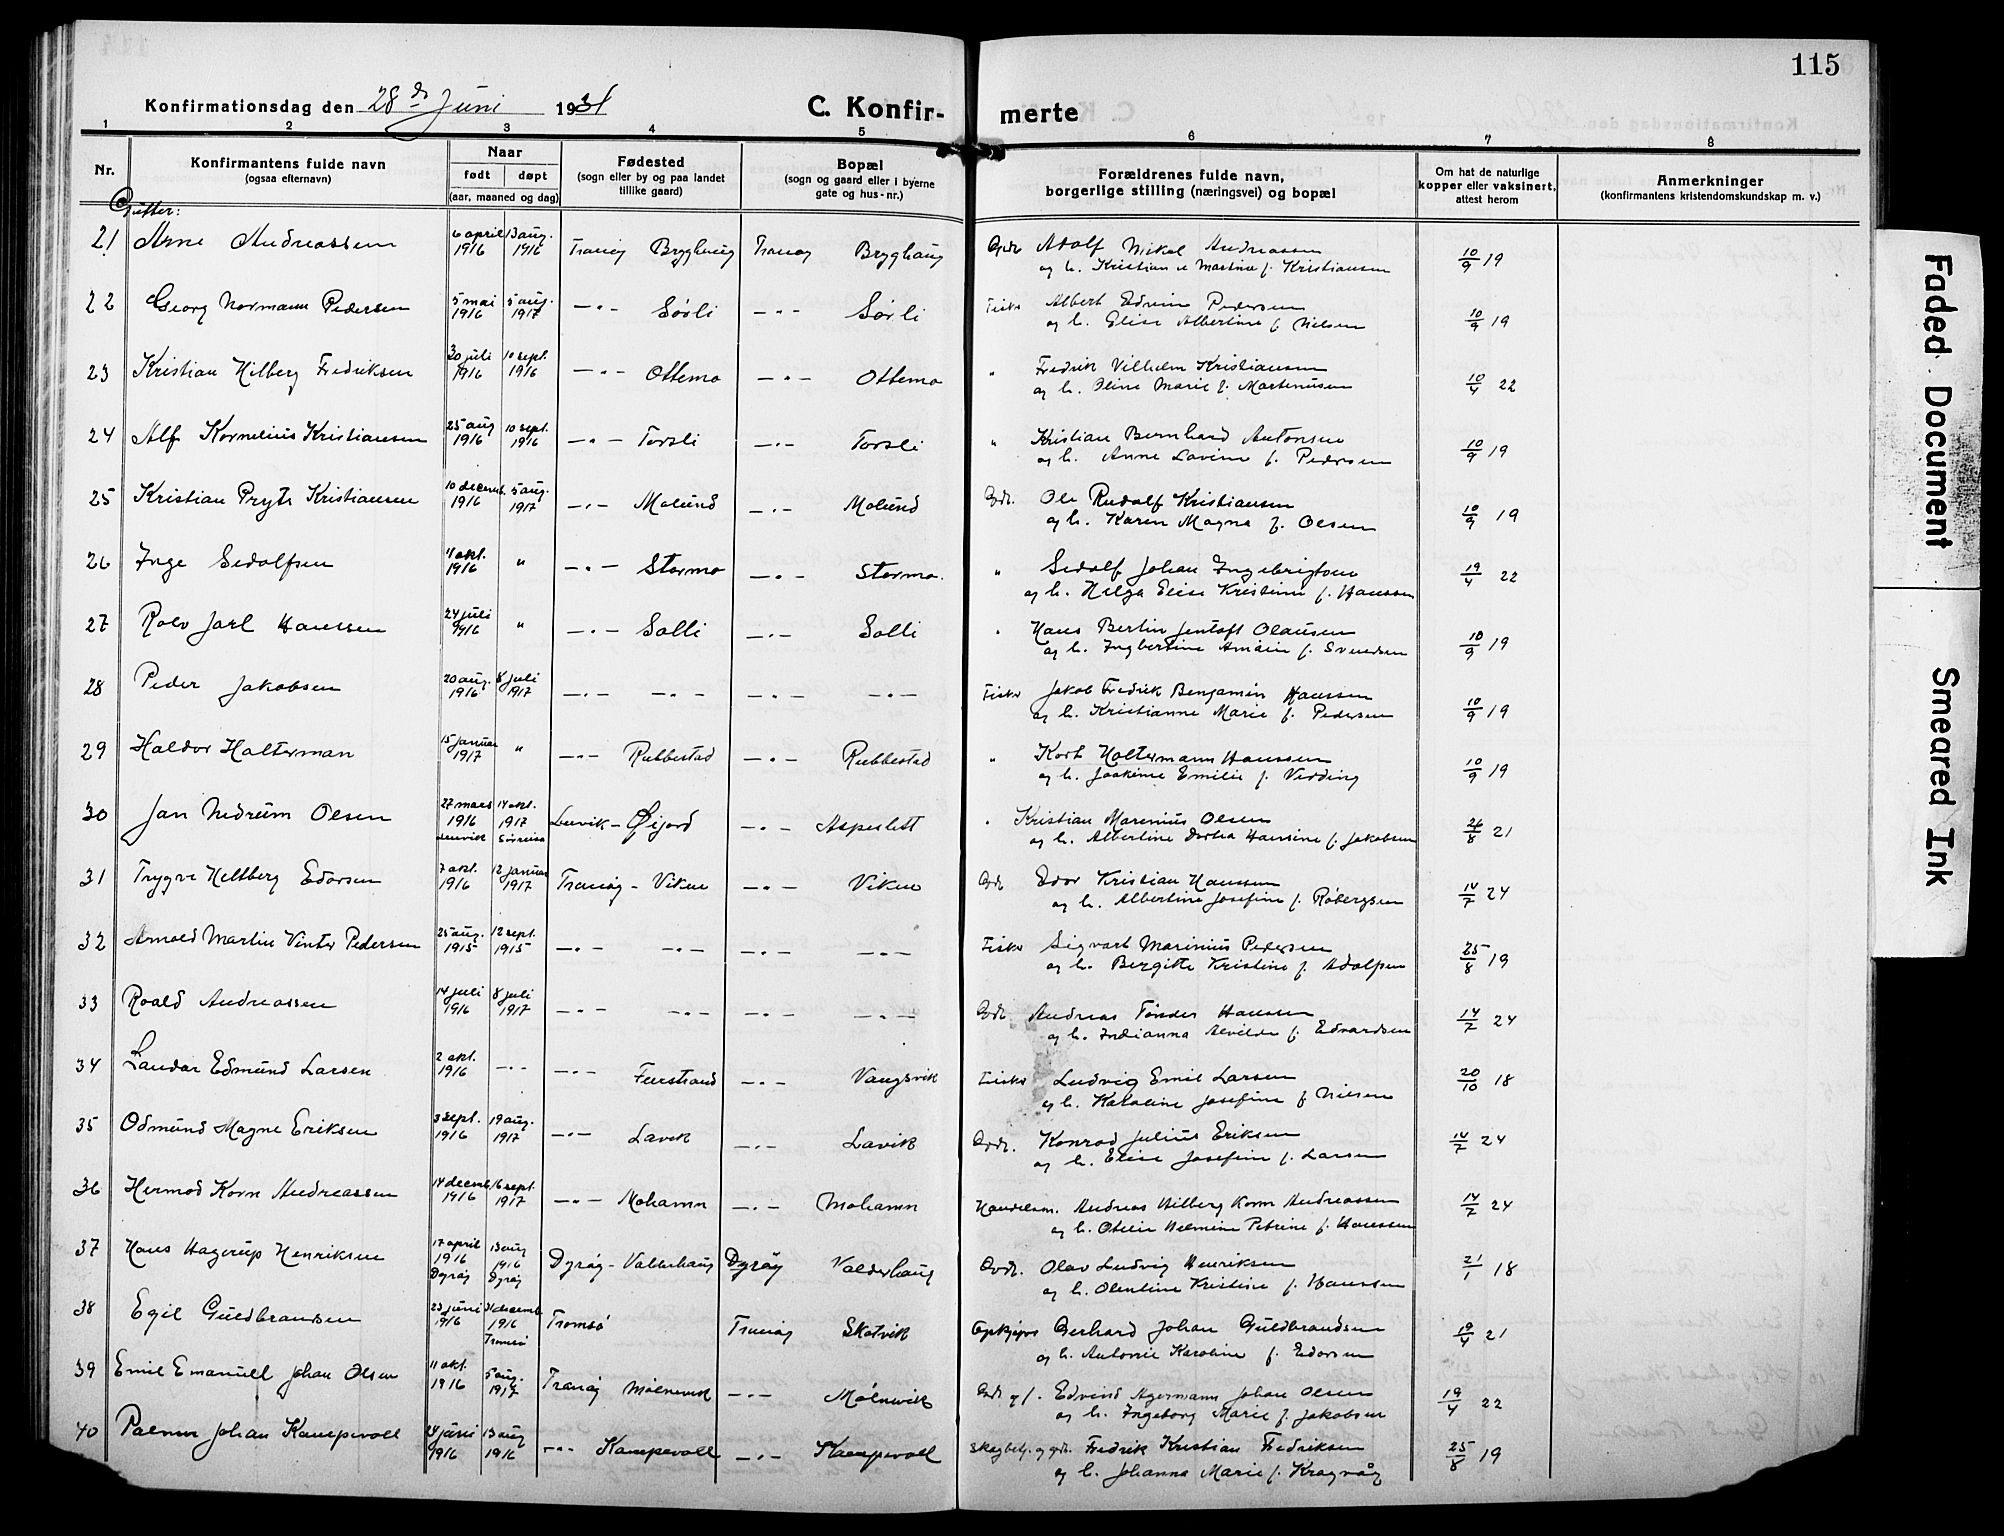 115
Konfirmationsdag den 28de Juni 1931
C. Konfirmerte
1 2 3 4 5 6 7 8
Nr. Konfirmantens fulde navn (ogsaa efternavn)
Naar født døpt (aar, maaned og dag)
Fødested (sogn eller by og paa landet tillike gaard)
Bopæl (sogn og gaard eller i byerne gate og hus-nr.)
Forældrenes fulde navn, borgerlige stilling (næringsvei) og bopæl
Om hat de naturlige kopper eller vaksinert, attest herom
Anmerkninger (konfirmantens kristendomskundskap m. v.)
Gutter:
21 Arne Andreassen 6 april 1916 13 aug. 1916 Tranøy Bryghaug Tranøy Bryghaug Gbr. Adolf Nikol Andreassen
og h. Kristiane Martine f. Kristiansen 10/9 19
22 Georg Normann Pedersen 5 mai 1916 5 aug. 1917 -"- Sørli -"- Sørli Fisker Albert Edvin Pedersen
og h. Elise Albertine f. Nielsen 10/9 19
23 Kristian Hilberg Fredriksen 30 juli 1916 10 sept. 1916 -"- Ottemo -"- Ottemo " Fredrik Vilhelm Kristiansen
og h. Oline Marie f. Martenusen 10/4 22
24 Alf Kornelius Kristiansen 25 aug 1916 10 sept. 1916 -"- Torsli -"- Torsli " Kristian Bernhard Antonsen
og h. Anne Lovine f. Pedersen 10/9 19
25 Kristian Pryts Kristiansen 10 decemb. 1916 5 aug. 1917 -"- Molund -"- Molund Gbr. Ole Rudolf Kristiansen
og h. Karen Magna f. Olsen 10/9 19
26 Inge Sedolfsen 4 okt. 1916 " -"- Stormo -"- Stormo. " Sedolf Johan Ingebrigtsen
og h. Helga Elise Kristine f. Hanssen 19/4 22
27 Rolv Jarl Hanssen 24 juli 1916 " -"- Solli -"- Solli " Hans Bertin Jentoft Olausen
og h. Ingbertine Amalie f. Svendsen 10/9 19
28 Peder Jakobsen 20 aug. 1916 8 juli 1917 -"- -"- -"- -"- Fisker Jakob Fredrik Benjamin Hanssen
og h. Kristianne Marie f. Pedersen 10/9 19
29 Haldor Holterman 15 januar 1917 " -"- Rubbestad -"- Rubbestad " Kort Holtermann Hanssen
og h. Joakime Emilie f. Vedding 10/9 19
30 Jan Nedrum Olsen 27 mars 1916 Lenvik 14 okt. 1917 Sørreisa Lenvik - Øijord -"- Aspeslett " Kristian Marenius Olsen
og h. Albertine Dortea Hansine f. Jakobsen 26/8 21
31 Trygve Heltberg Edorsen 7 okt. 1916 12 januar 1917 Tranøy - Viken -"- Viken Gbr. Edor Kristian Hanssen
og h. Albertine Josefine f. Røbergsen 14/7 24
32 Arnold Martin Vinter Pedersen 25 aug. 1915 12 sept. 1915 -"- -"- -"- -"- Fisker Sigvart Marinius Pedersen
og h. Bergitte Kristine f. Adolfsen 25/8 19
33 Roald Andreassen 14 juli 1916 8 juli 1917 -"- -"- -"- -"- Gbr. Andreas Tønder Hanssen
og h. Indianna Alvilde f. Edvardsen 14/7 24
34 Landor Edmund Larsen 2 okt. 1916 -"- -"- Finstrand -"- Vangsvik Fisker Ludvig Emil Larsen
og h. Karoline Josefine f. Nielsen 20/10 18
35 Odmund Magne Eriksen 3 sept. 1916 19 aug. 1917 -"- Lavik -"- Lavik Gbr. Konrad Julius Eriksen
og h. Elise Josefine f. Larsen 14/7 24
36 Hermod Korn Andreassen 14 decemb. 1916 16 sept. 1917 -"- Mohamn -"- Mohamn Handelsm. Andreas Hilberg Korn Andreassen
og h. Otelie Helmine Petrine f. Hanssen 14/7 24
37 Hans Hagerup Henriksen 17 april 1916 Dyrøy 13 aug 1916 Dyrøy Dyrøy - Valderhaug Dyrøy Valderhaug Gbr. Olav Ludvig Henriksen
og h. Olentine Kristine f. Hanssen 21/1 18
38 Egil Guldbransen 23 juni 1916 31 decemb. 1916 Tromsø Tromsø Tranøy Skatvik Opkjøper Gerhard Johan Guldbrandsen
og h. Antonie Karoline f. Edorsen 19/4 21
39 Emil Emanuell Johan Olsen 11 okt. 1916 5 aug. 1917 Tranøy Mølnevik -"- Mølnevik Gbr. og f. Edvind Agermann Johan Olsen
og h. Ingeborg Marie f. Jakobsen 19/4 22
40 Palmer Johan Kampevoll 24 juni 1916 13 aug 1916 -"- Kampevoll -"- Kampevoll Skogbetj. og gbr. Fredrik Kristian Fredriksen
og h. Johanna Marie f. Kragvåg 25/8 19
Faded Document
Smeared Ink